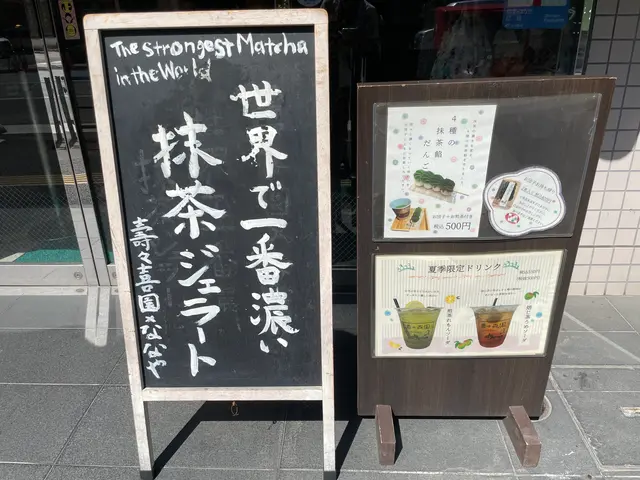 The strongest Matcha
in the World
世界で一番濃い
抹茶ジェラート
壽々喜園×ななや
4種の
抹茶餡
だんご
税込 500円
夏季限定ドリンク